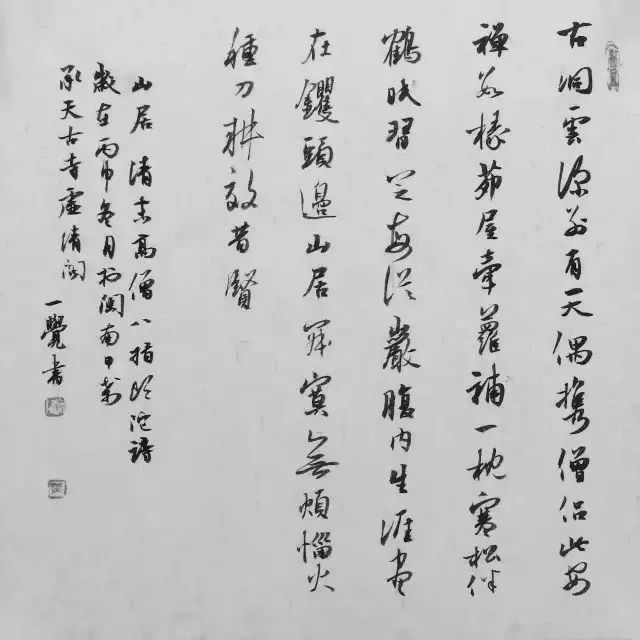 古洞雲深別有天偶携僧侶此安
禪數椽茆屋牽蘿補一枕寒松伴
鶴眠習定每從巖腹内生涯盡
在钁頭邊山居寂寞無煩惱火
種刀耕效昔賢
山居清末高僧八指頭陀詩
歲在丙申冬月於閩南甲
承天古寺虛清閣 一覺書